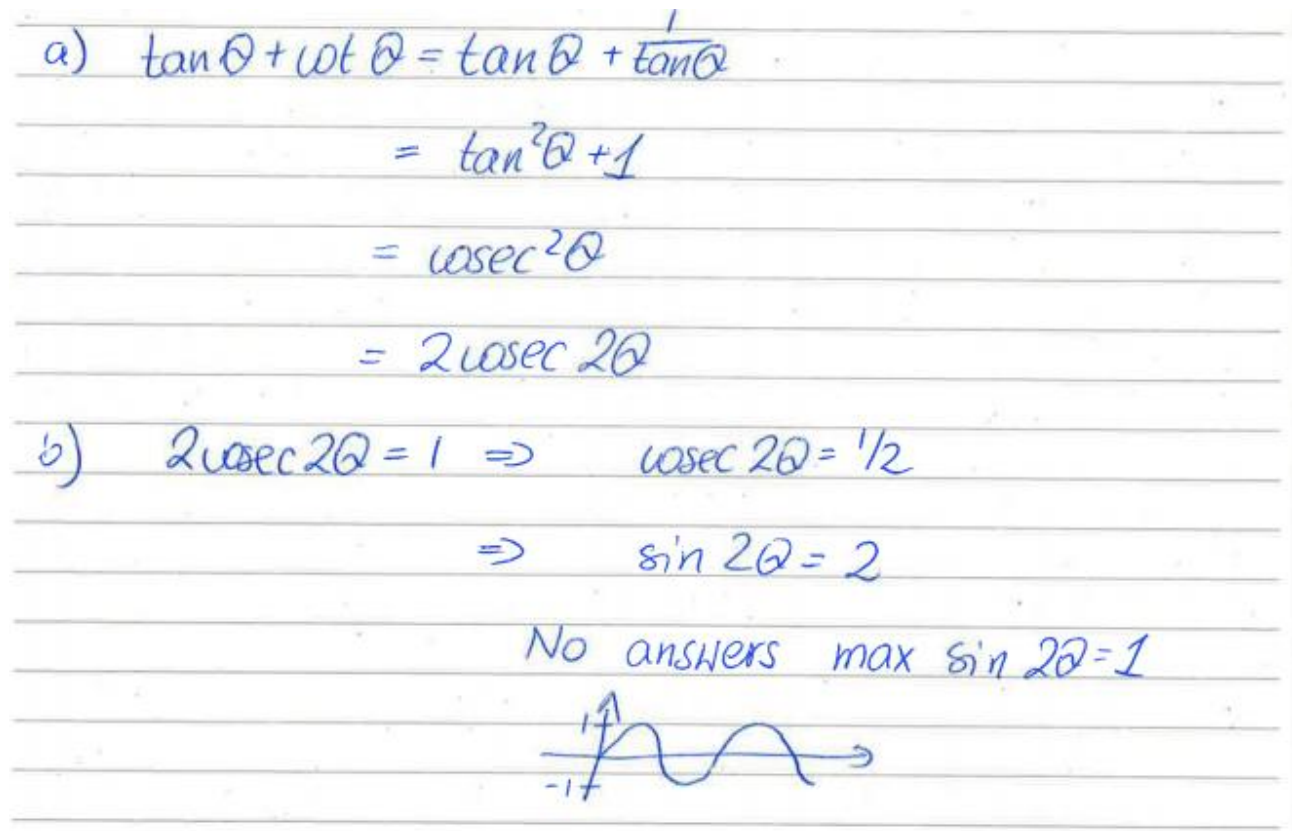 a) tanθ + cotθ = tanθ + 1/tanθ
= tan²θ + 1
= cosec²θ
= 2cosec 2θ
b) 2cosec2θ = 1 ⇒ cosec 2θ = 1/2
⇒ sin 2θ = 2
No answers max sin 2θ = 1
1
-1